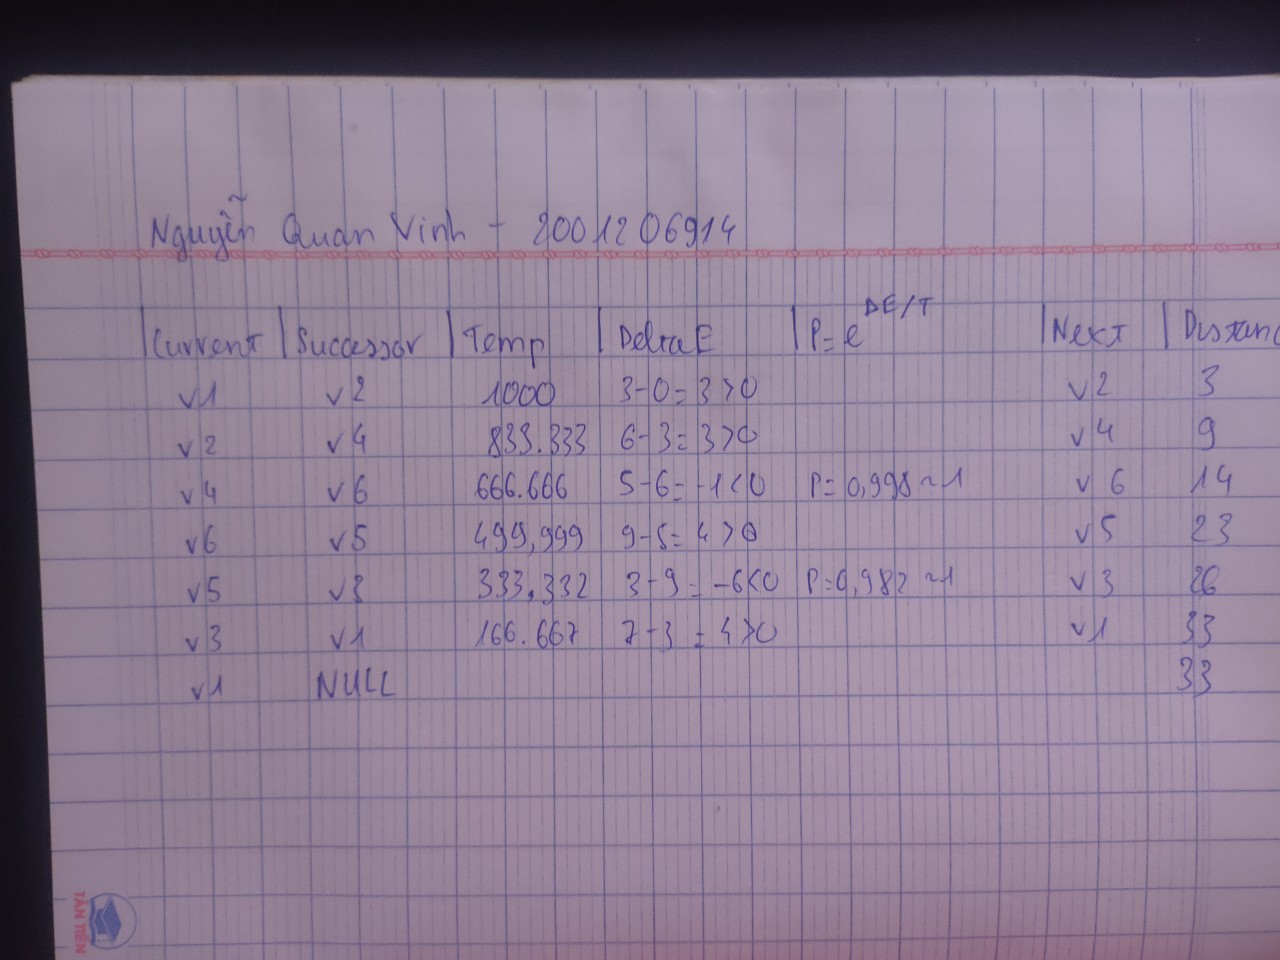 Nguyễn Quan Vinh - 2001206914
|Current |Successor |Temp |DeltaE |P=e^DE/T |Next |Distanc
v1 v2 1000 3-0=3>0 v2 3
v2 v4 833.333 6-3=3>0 v4 9
v4 v6 666.666 5-6=-1<0 P=0,998~1 v6 14
v6 v5 499,999 9-5=4>0 v5 23
v5 v3 333,332 3-9=-6<0 P=0,982~1 v3 26
v3 v1 166.667 7-3=4>0 v1 33
v1 NULL 33
TÂN TIẾN